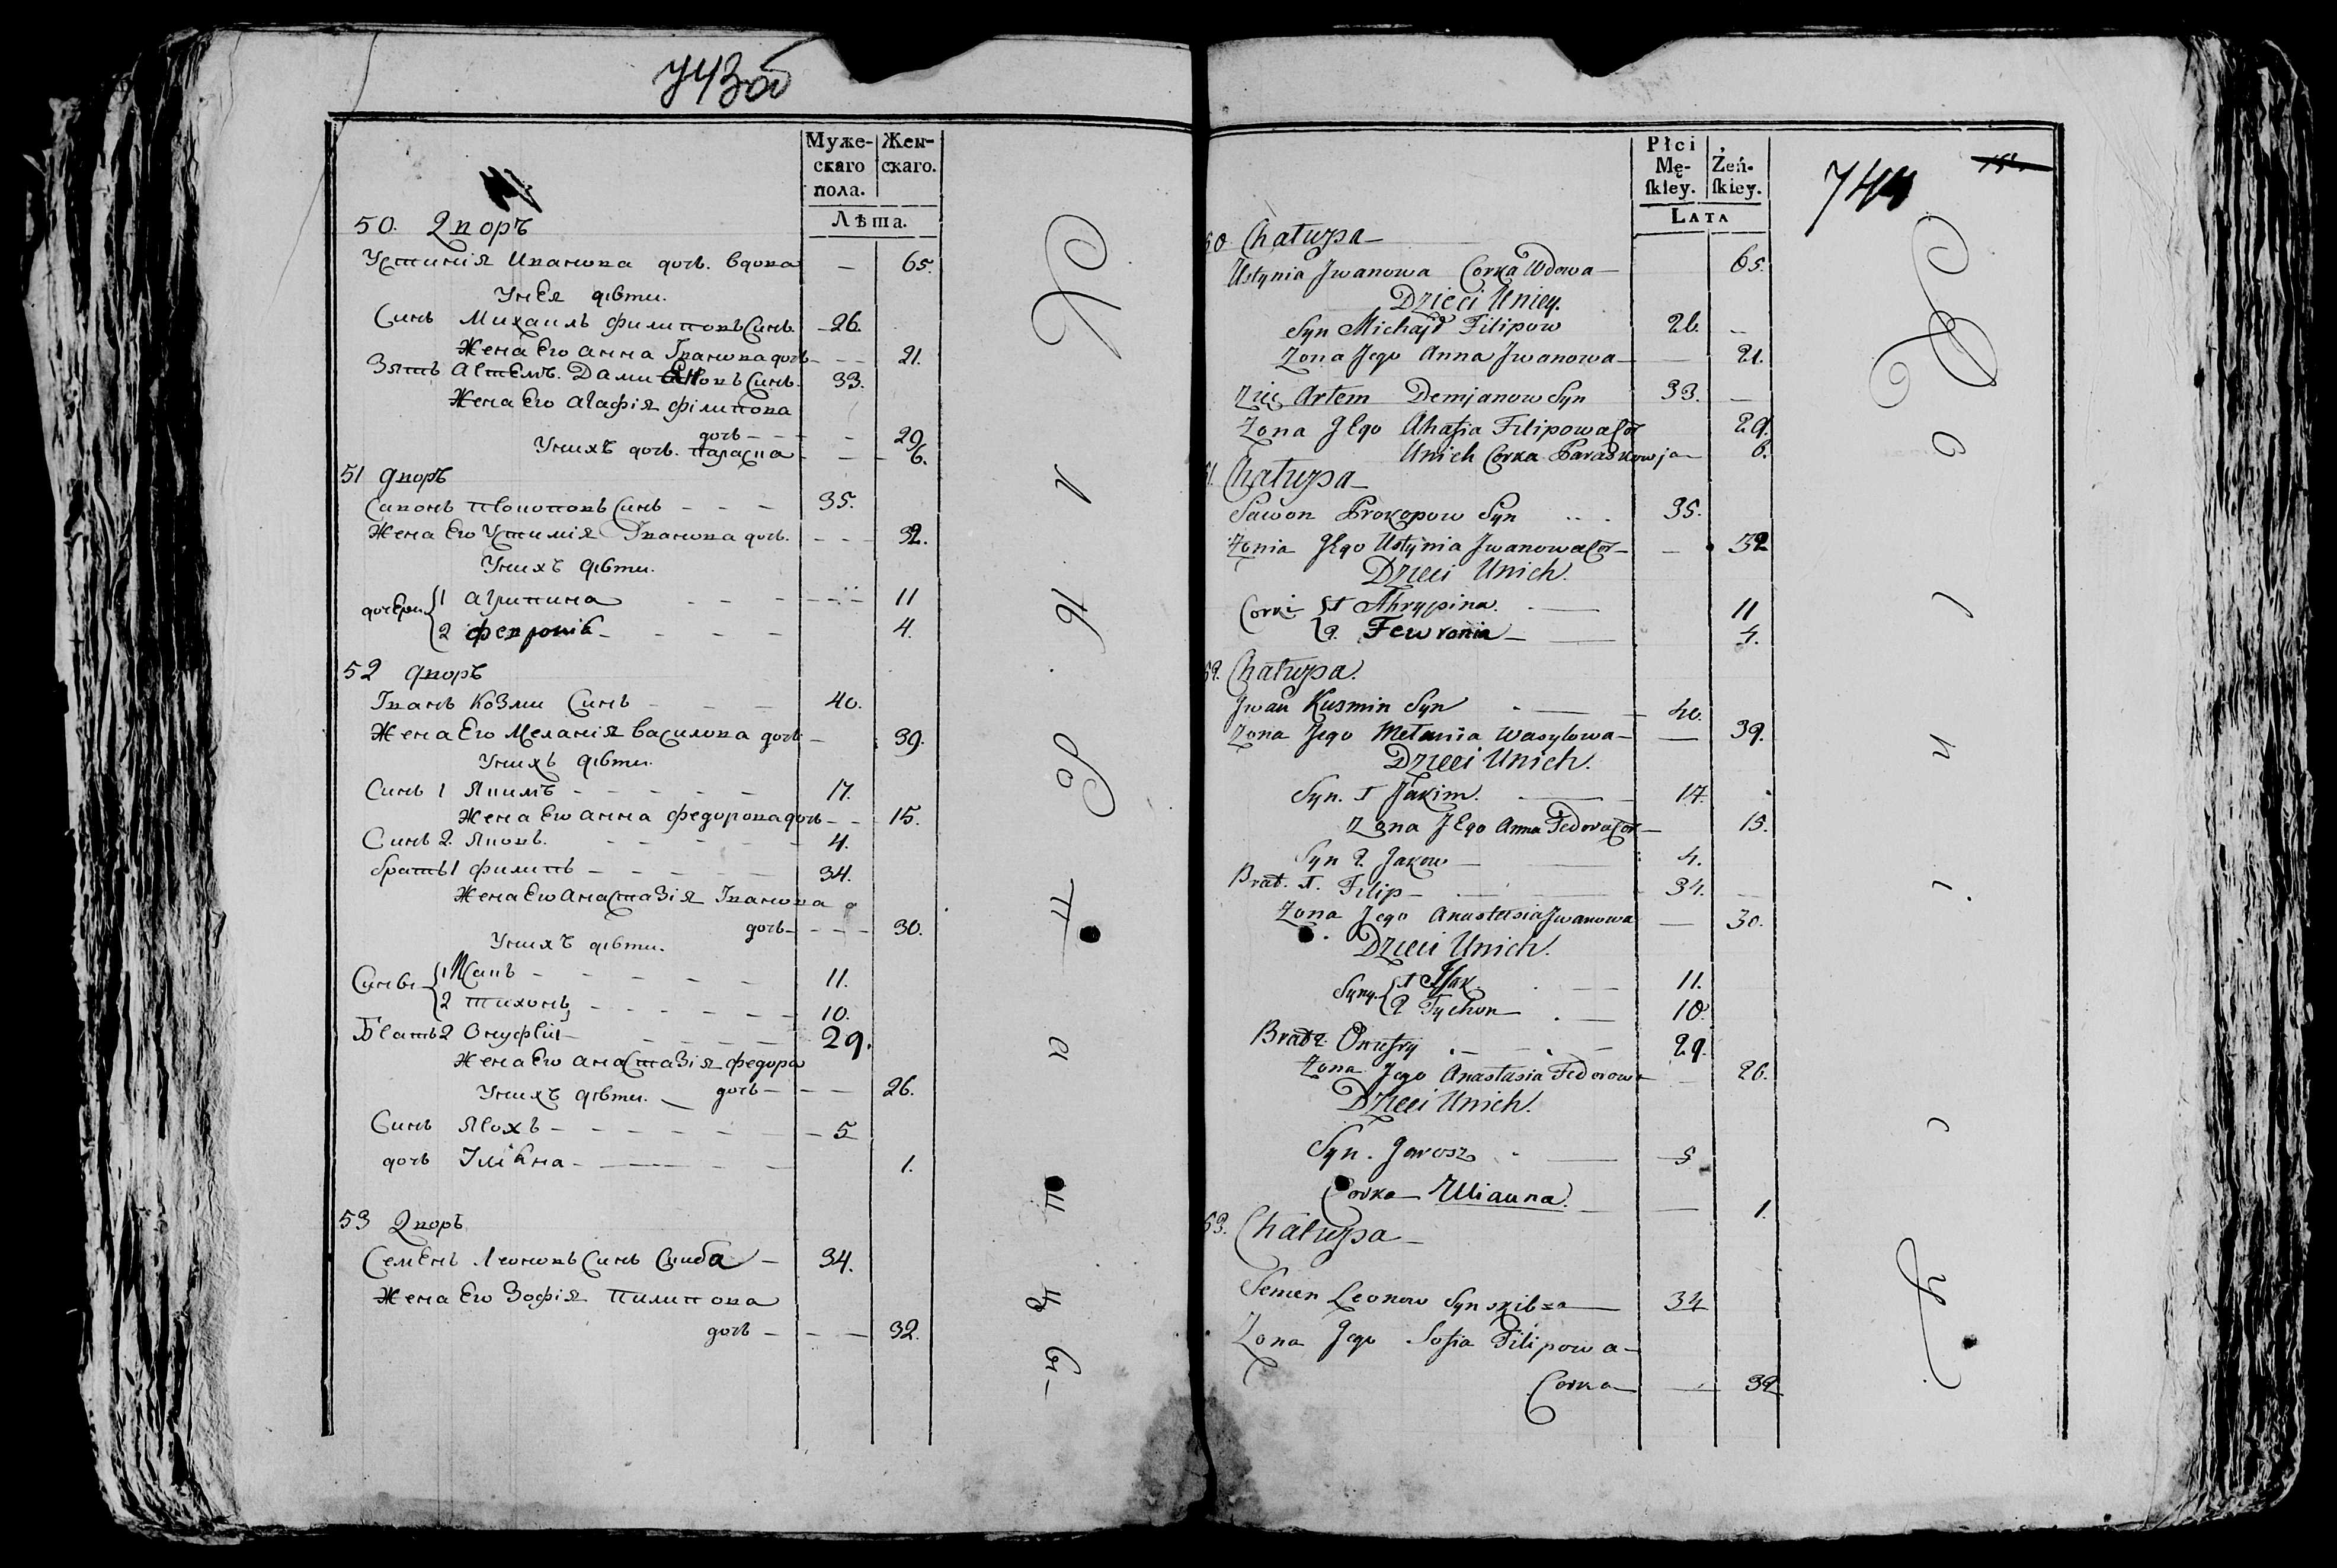 743об
Муже-
скаго
пола.
Жен-
скаго.
Лѣта.
50. Дворъ
Устинія Иванова дочь вдова — 65.
Унея дѣти.
Синъ Михаилъ филиповъ Синъ. 26.
Жена Его анна Іванова дочь 21.
Зять Артемъ. Дамиеновъ Синъ. 33.
Жена Его агафія філипова
дочь 29
Унихъ дочь. параска 6.
51 дворъ
Савонъ прокоповъ Синъ 35.
Жена Его Устимія Іванова дочь. 32.
Унихъ дѣти.
дочери 1 агрипина 11
2 февронія 4.
52 дворъ
Іванъ Козми Синъ 40.
Жена Его Меланія василова дочь 39.
Унихъ дѣти.
Синъ 1 Якимъ 17.
Жена Его анна федорова дочь 15.
Синъ 2. Яковъ. 4.
братъ 1 филипъ 34.
Жена Его анастазія Іванова
дочь 30.
Унихъ дѣти.
Сины 1 Исакъ 11.
2 тихонъ 10.
Братъ 2 Онуфрій 29.
Жена Его анастазія федора
Унихъ дѣти. дочь 26.
Синъ Ярохъ 5
дочь 1.
53 Дворъ
Семенъ Леоновъ Синъ Скиба 34.
Жена Его Зофія Пилипова
дочь 32.
Płci
Mę-
ſkiey.
Żeń-
ſkiey.
LATA
744
50 Chałupa
Ustynia Jwanowa Corka Wdowa 65.
Dzieci Uniey.
Syn Michajł Filipow 26.
Zona Jego Anna Jwanowa 21.
Zięć Artem Demjanow Syn 33.
Zona Jego Ahafia Filipowa Cor 29.
Unich Corka Paraskowja 6.
51. Chałupa
Sawon Prokopow Syn 35.
Zonia Jego Ustynia Jwanowa Cor 32
Dzieci Unich.
Corki 1 Ahrypina. 11
2. Fewronia 4.
52. Chałupa.
Jwan Kusmin Syn 40.
Zona Jego Melania Wasylowa 39.
Dzieci Unich.
Syn. 1 Jakim. 17.
Zona Jego Anna Fedora Cor 15.
Syn 2. Jakow 4.
Brat. 1. Filip 34.
Zona Jego Anastasia Jwanowa 30.
Dzieci Unich.
Syny. 1 Isak. 11.
2 Tychon 10.
Brat 2. Onufry 29.
Zona Jego Anastasia Fedorowa 26.
Dzieci Unich.
Syn. Jarosz 5
Corka Ulianna. 1.
53. Chałupa
Semen Leonow Syn skibza 34
Zona Jego Sofia Filipowa
Corka 32